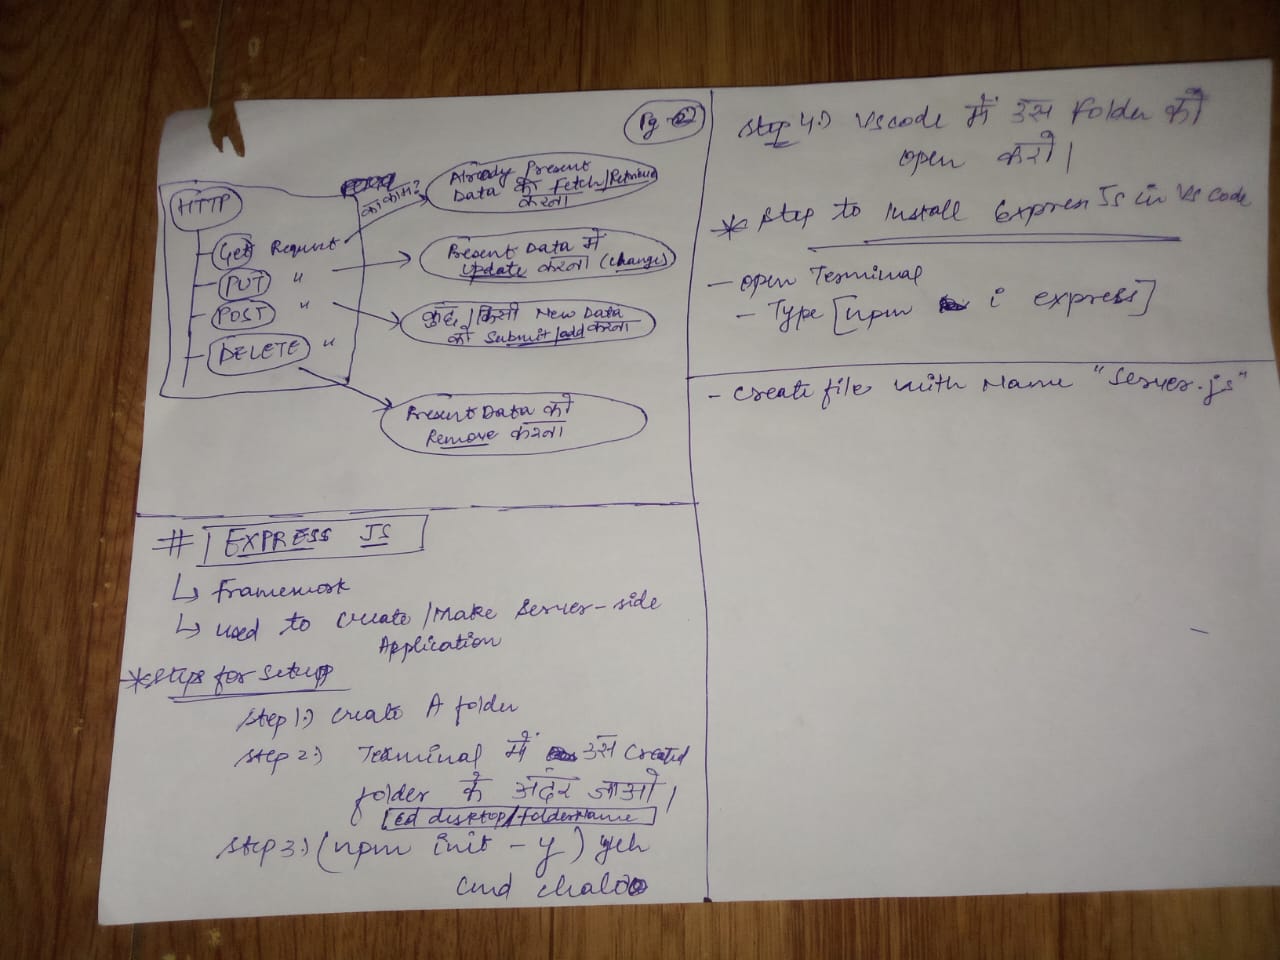 Pg-02
HTTP
Get Request
PUT "
POST "
DELETE "
Already Present
Data को Fetch/Retrieve
करना
Present Data में
Update करना (changes)
कुछ/किसी New Data
को Submit/add करना
Present Data को
Remove करना
# EXPRESS JS
↳ framework
↳ used to create/Make Server-side
Application
*Steps for Setup
Step 1:) create A folder
Step 2:) Terminal में उस created
folder के अंदर जाओ।
cd desktop/folderName
Step 3:) (npm init -y) yeh
cmd chalao
Step 4:) Vscode में उस folder को
open करो।
* Step to Install Express Js in Vs code
- open Terminal
- Type [npm i express]
- create file with Name "Server.js"